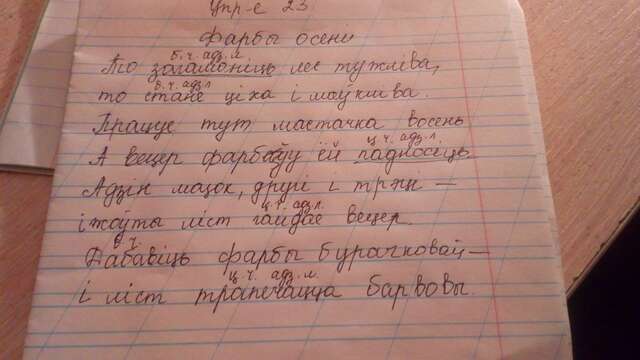 Упр-е 23
Фарбы осени
б.ч. адз.л.
То загамоніць лес тужліва,
б.ч. адз.л
то стане ціха і маўкліва.
Працуе тут мастачка восень
ц.ч. адз.л.
А вецер фарбаўу ёй падносіць
Адзін мазок, другі і трэці –
ц.ч. адз.л.
і жоўты ліст гайдае вецер.
б.ч.
Дабавіць фарбы бурачковай –
ц.ч. адз.л.
і ліст трапечацца барвовы.